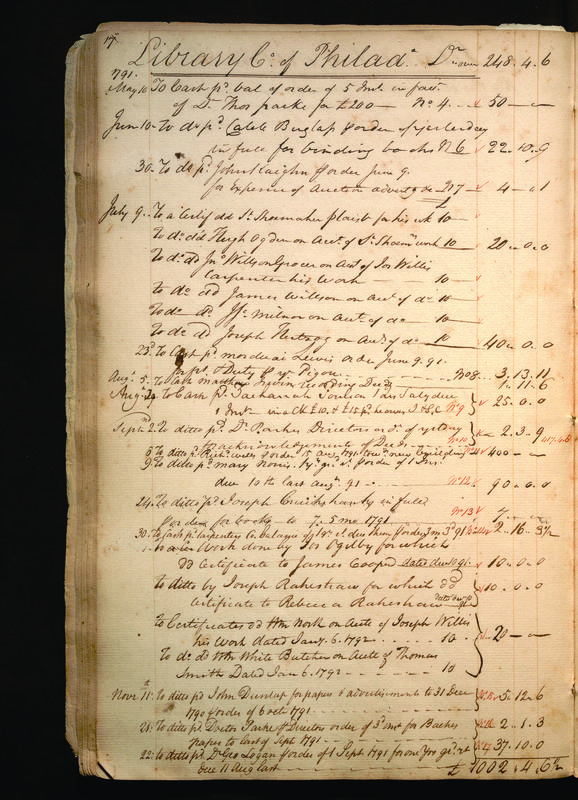 Library Co. of Philada. Dr. over 248. 4. 6
1791.
May 10 To Cash pd. bal of order of 5 Inst. in favr.
of Dr. Thos parke for £200 — No 4 — 50 — —
June 10 To do pd. Caleb Buglap order of yesterday
in full for binding books N 6 22. 10. 9
30. To do pd. John Vaughn order June 9.
for expence of Auction advertg &c No 7 4 — 1
July 9. To a Certif dd. St. Shoemaker plaist for his wk 10 —
To do. dd Hugh Ogden on Acct. of St. Shoem work 10 — 20 — 0. 0
To do. dd Jno. Wilson Grocer on Act of Jos Willis
Carpenter his Work — 10 —
to do dd James Wilson on Act. of do 10 —
To do dd Milnor on Act. of do — 10 —
To do dd Joseph Hertzog on Act. of do 10 40 — 0. 0
23d To Cash pd. mordecai Lewis Order June 9. 91
for & Duty No 8. 3. 13. 11
Augt. 5. To Cash Matthew recording Deeds 1. 11. 6
Augt. To Cash pd. Zachariah Poulson 1 yrs Salary due
1 Inst No 9 25. 0. 0
Septr. 2. To ditto pd. Dr. Parkes Directors or. of yesterday
acknowledgements of Deeds No 10 2. 3. 9
6 To ditto pd. Richd. Wells order 5 Augt 1791 tow. new Building No 11 400 — —
9. To ditto pd. mary Norris order of 1 Inst.
due 10th last augt. 91 — No 12 90. 0. 0
24. To ditto pd. Joseph Cruikshank in full
for books to 7. 5 mo 1791 No 13 7 — —
30. To Cash pd. Carpentry Co. balance of 2. 16. 3½
Work done by Jos Ogilby for which
dd Certificate to James Cooper dated 10. 0. 0
to ditto by Joseph Rakestraw for which dd
Certificate to Rebecca Rakestraw 10. 0. 0
to Certificates dd Wm North on Acct of Joseph Willis
his Work dated Jany. 6. 1792 — 10
To do. dd Wm White Butcher on Acct of Thomas 20 — —
Smith Dated Jan 6. 1792 — 10
Novr. 11. To ditto pd John Dunlap for papers & advertisements to 31 Decr
1790 order of 6 octr 1791 5. 12. 6
21. To ditto pd. Doctor Parke Director order of 3d Inst for Baches
papers to last of Septr 1791 2. 1. 3
22. to ditto pd. Dr. Geo Logan order of 1 Septr 1791 for one yrs gr. rt 37. 10. 0
due 11 Aug last £ 1002. 4. 6½